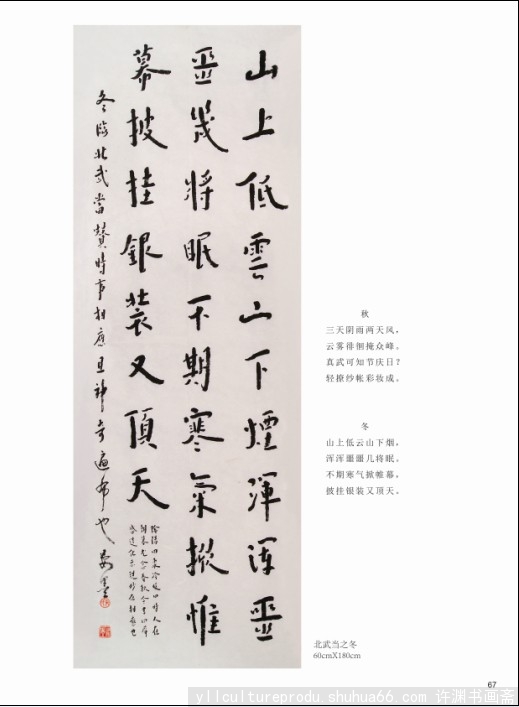 山上低雲山下煙渾渾噩
噩幾將眠不期寒氣掀帷
幕披挂銀裝又頂天
冬臨北武當贊時事相應且神奇遍布也
秋
三天阴雨两天风，
云雾徘徊掩众峰。
真武可知节庆日？
轻撩纱帐彩妆成。
冬
山上低云山下烟，
浑浑噩噩几将眠。
不期寒气掀帷幕，
披挂银装又顶天。
北武当之冬
60cmX180cm
67
yllcultureprodu.shuhua66.com 许渊书画斋